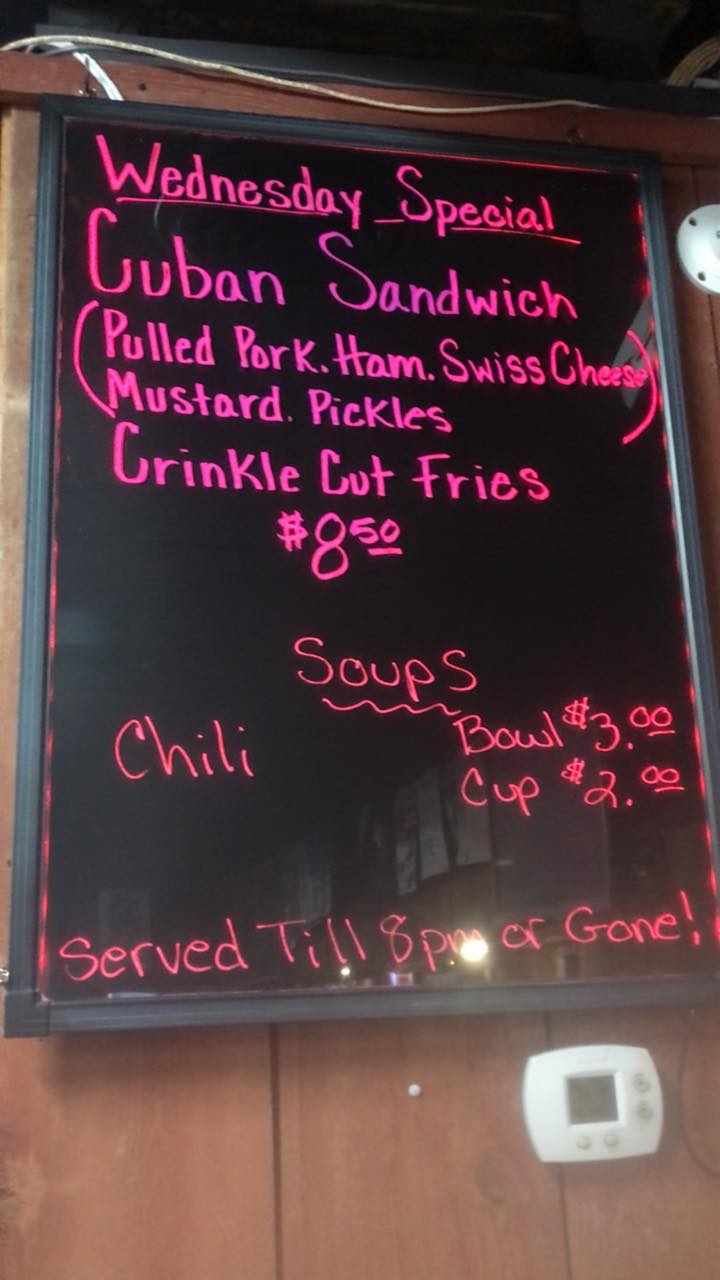 Wednesday Special
Cuban Sandwich
(Pulled Pork. Ham. Swiss Cheese
Mustard. Pickles)
Crinkle Cut Fries
$8.50
Soups
Chili Bowl $3.00
Cup $2.00
Served Till 8pm or Gone!